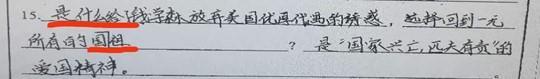 15. 是什么给了钱学森放弃美国优厚代遇的诱惑，选择回到一无
所有的国祖 ？ 是“国家兴亡，匹夫有责”的
爱国精神。